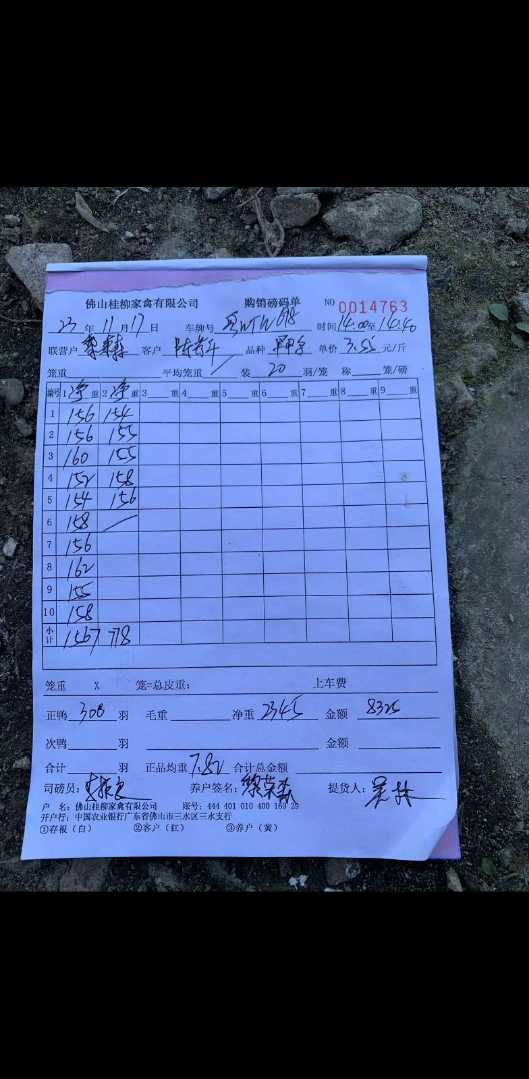 佛山桂柳家禽有限公司 购销磅码单 NO 0014763
23 年 11 月 17 日 车牌号 WTW698 时间 14.00 至 14.40
联营户 客户 品种 单价 3.55 元/斤
笼重 平均笼重 装 20 羽/笼 称 笼/磅
编号 1 净 重 2 净 重 3 重 4 重 5 重 6 重 7 重 8 重 9 重
1 156 154
2 156 155
3 160 155
4 152 158
5 154 156
6 158
7 156
8 162
9 155
10 158
小计 1567 778
笼重 X 笼=总皮重: 上车费
正鸭 300 羽 毛重 净重 2345 金额 8325
次鸭 羽 金额
合计 羽 正品均重 7.82 合计总金额
司磅员: 养户签名: 黎荣森 提货人:
户 名: 佛山桂柳家禽有限公司 账号: 444 401 010 400 163 28
开户行: 中国农业银行广东省佛山市三水区三水支行
①存根(白) ②客户(红) ③养户(黄)